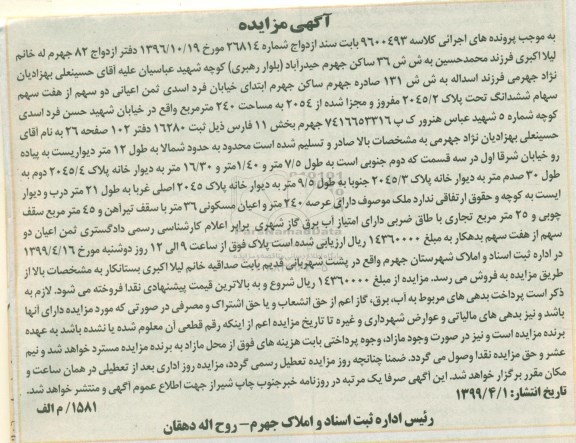 آگهی مزایده
به موجب پرونده های اجرائی کلاسه ۹۶۰۰۴۹۳ بابت سند ازدواج شماره ۲۶۸۱۴ مورخ ۱۳۹۶/۱۰/۱۹ دفتر ازدواج ۸۲ جهرم له خانم
لیلا اکبری فرزند محمدحسین به ش ش ۳۶ ساکن جهرم حیدرآباد (بلوار رهبری) کوچه شهید عباسیان علیه آقای حسینعلی بهزادیان
نژاد جهرمی فرزند اسداله به ش ش ۱۳۱ صادره جهرم ساکن جهرم ابتدای خیابان فرد اسدی ثمن اعیانی دو سهم از هفت سهم
سهام ششدانگ تحت پلاک ۲۰۴۵/۲ مفروز و مجزا شده از ۲۰۵۴ به مساحت ۲۴۰ مترمربع واقع در خیابان شهید حسن فرد اسدی
کوچه شماره ۵ شهید عباس هنرور ک پ ۷۴۱۶۶۵۳۳۱۶ جهرم بخش ۱۱ فارس ذیل ثبت ۱۶۲۸۰ دفتر ۱۰۲ صفحه ۲۶ به نام آقای
حسینعلی بهزادیان نژاد جهرمی به مشخصات بالا صادر و تسلیم شده است محدود به حدود شمالا به طول ۱۲ متر دیواریست به پیاده
رو خیابان شرقا اول در سه قسمت که دوم جنوبی است به طول ۷/۵ متر و ۱/۴۰متر و ۱۶/۳۰ متر به دیوار خانه پلاک ۲۰۴۵/۴ دوم به
طول ۳۰ صدم متر به دیوار خانه پلاک ۲۰۴۵/۳ جنوبا به طول ۹/۵ متر به دیوار خانه پلاک ۲۰۴۵ اصلی غربا به طول ۲۱ متر درب و دیوار
ایست به کوچه و حقوق ارتفاقی ندارد ملک موصوف دارای عرصه ۲۴۰ متر و اعیان مسکونی ۳۶ متر با سقف تیراهن و ۴۵ متر مربع سقف
چوبی و ۲۵ متر مربع تجاری با طاق ضربی دارای امتیاز آب برق گاز شهری برابر اعلام کارشناسی رسمی دادگستری ثمن اعیان دو
سهم از هفت سهم بدهکار به مبلغ ۱۴۳۶۰۰۰۰ ریال ارزیابی شده است پلاک فوق از ساعت ۹ الی ۱۲ روز دوشنبه مورخ ۱۳۹۹/۴/۱۶
در اداره ثبت اسناد و املاک شهرستان جهرم واقع در پشت شهربانی قدیم بابت صداقیه خانم لیلا اکبری بستانکار به مشخصات بالا از
طریق مزایده به فروش می رسد. مزایده از مبلغ ۱۴۳۶۰۰۰۰ ریال شروع و به بالاترین قیمت پیشنهادی نقدا فروخته می شود. لازم به
ذکر است پرداخت بدهی های مربوط به آب، برق، گاز اعم از حق انشعاب و یا حق اشتراک و مصرفی در صورتی که مورد مزایده دارای آنها
باشد و نیز بدهی های مالیاتی و عوارض شهرداری و غیره تا تاریخ مزایده اعم از اینکه رقم قطعی آن معلوم شده یا نشده باشد به عهده
برنده مزایده است و نیز در صورت وجود مازاد، وجوه پرداختی بابت هزینه های فوق از محل مازاد به برنده مزایده مسترد خواهد شد و نیم
عشر و حق مزایده نقدا وصول می گردد. ضمنا چنانچه روز مزایده تعطیل رسمی گردد، مزایده روز اداری بعد از تعطیلی در همان ساعت و
مکان مقرر برگزار خواهد شد. این آگهی صرفا یک مرتبه در روزنامه خبرجنوب چاپ شیراز جهت اطلاع عموم آگهی و منتشر خواهد شد.
تاریخ انتشار: ۱۳۹۹/۴/۱
۱۵۸۱/ م الف
رئیس اداره ثبت اسناد و املاک جهرم– روح اله دهقان